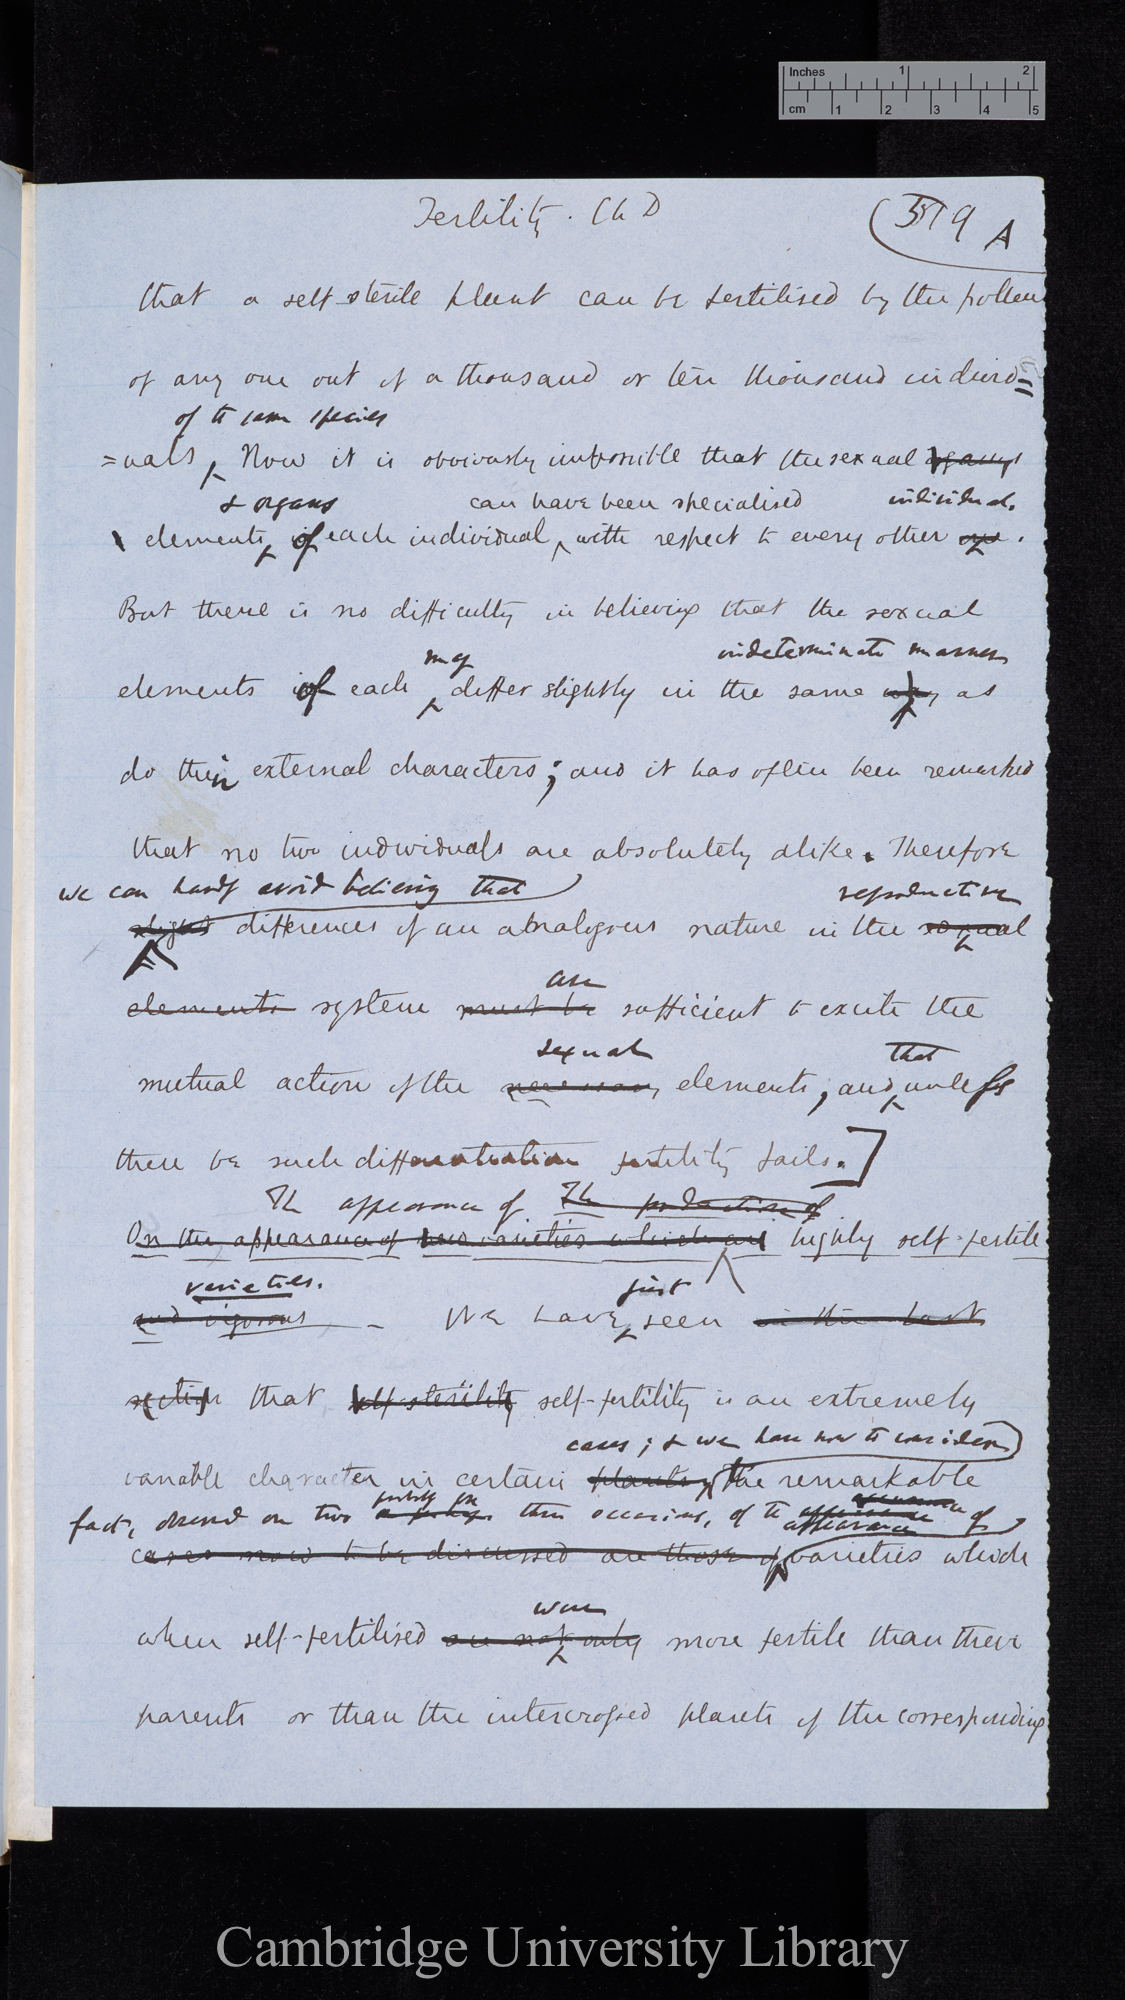 Inches 1 2
cm 1 2 3 4 5
Fertility. Ch D
519 A
that a self-sterile plant can be fertilised by the pollen
of any one out of a thousand or ten thousand individ=
of the same species
=uals, Now it is obviously impossible that the sexual organs
& organs can have been specialised individual.
elements of each individual, with respect to every other one.
But there is no difficulty in believing that the sexual
may indeterminate manner
elements of each differ slightly in the same way as
do their external characters; and it has often been remarked
that no two individuals are absolutely alike. Therefore
we can hardly avoid believing that reproductive
slight differences of an analogous nature in the sexual
are
elements system must be sufficient to excite the
sexual that
mutual action of the necessary elements, and unless
there be such differentiation fertility fails.]
The appearance of The production of
On the appearance of new varieties which are highly self-fertile
varieties. just
and vigorous We have seen in the last
section that self-sterility self-fertility is an extremely
cases; & we have now to consider
variable character in certain plants, the remarkable
fact, observed on two or three occasions, of the appearance of
cases now to be discussed are those of varieties which
were
when self-fertilised are not only more fertile than their
parents or than the intercrossed plants of the corresponding
Cambridge University Library